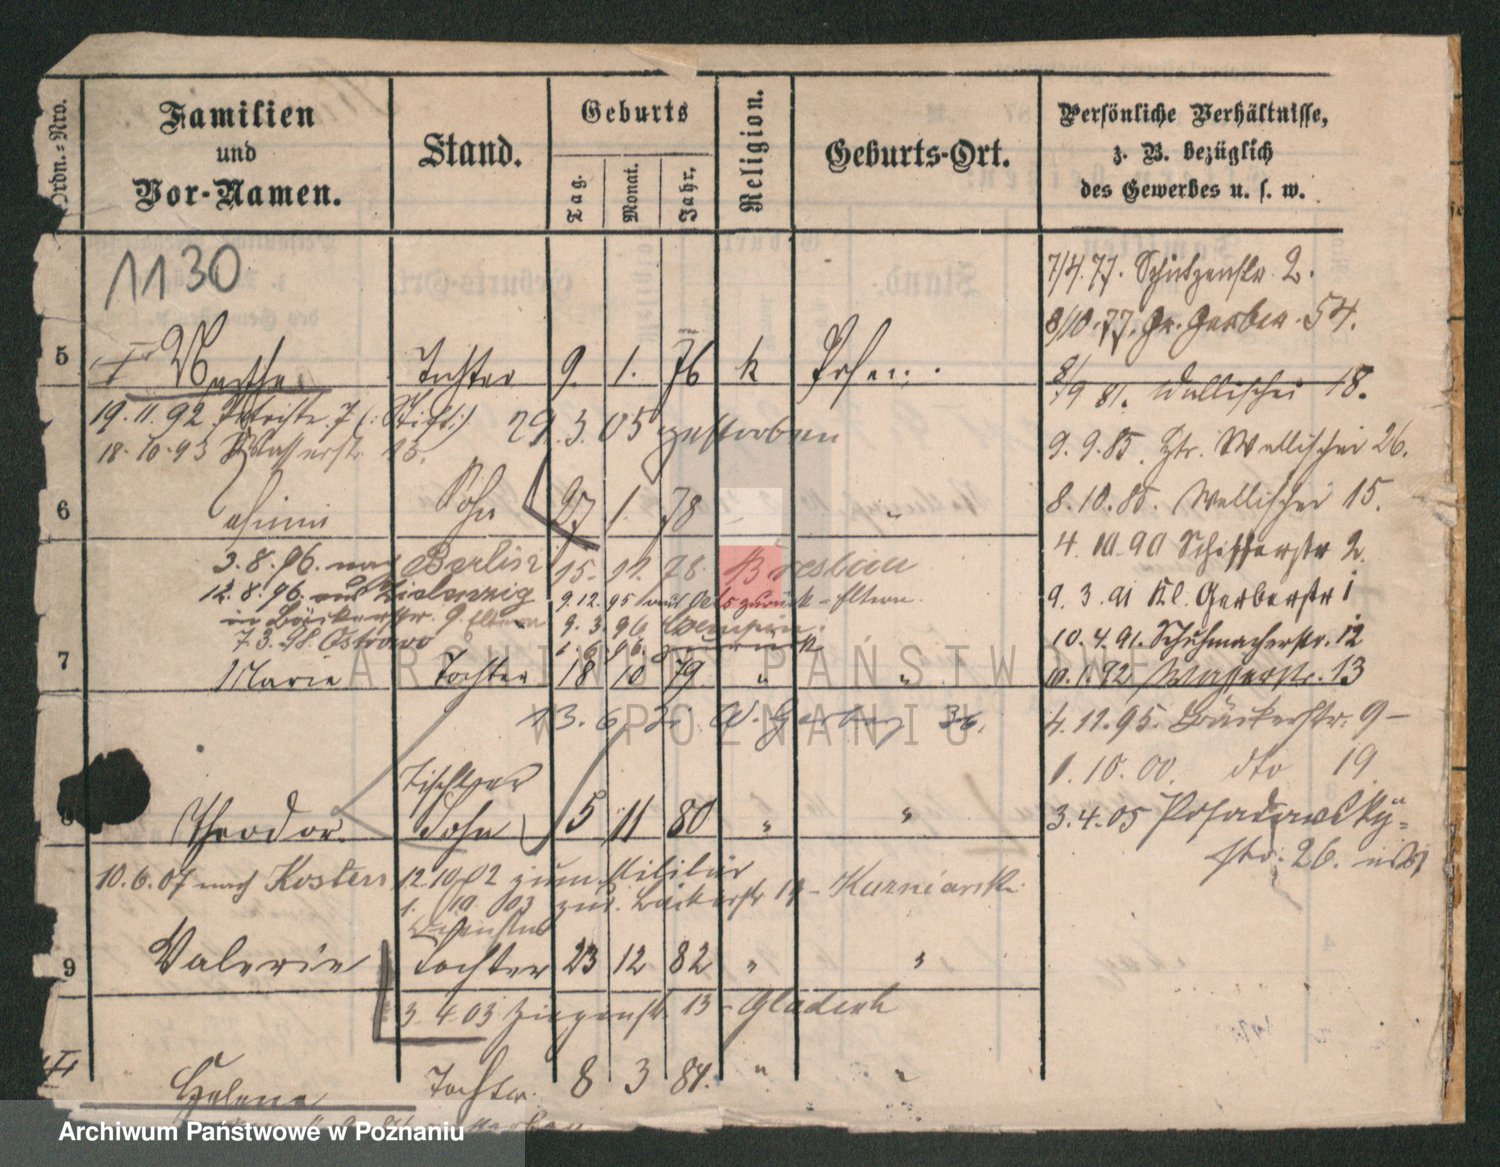 Ordn.-Nro.
Familien
und
Vor-Namen.
Stand.
Geburts
Tag.
Monat.
Jahr.
Religion.
Geburts-Ort.
Persönliche Verhältnisse,
z. B. bezüglich
des Gewerbes u. s. w.
1130
7/4.77. Schützenstr 2.
8/10.77. Gr. Gerber. 54.
5 Tochter 9. 1. 76 k Posen.
8/9 81. Wallischei 18.
19.11.92 7
29.3.05 gestorben
18.10.93 Wasserstr. 13.
9.9.85. Wallischei 26.
6 Sohn 27 1. 78 "
8.10.85. Wallischei 15.
3.8.96. nach Berlin
4.10.90 Schifferstr 2.
15. 11. 78. Breslau
12.8.96. aus Zielenzig
9.12.95 zurück - Eltern.
9.3.91 Kl. Gerberstr 1
in Bäckerstr. 9 Eltern
9.3.96
7.3.98. Ostrowo
10.4.91. Schuhmacherstr. 12
7 Marie Tochter 18 10 79 " "
10.1.92 Wasserstr. 13
13. 6. Gerber 36.
4.11.95. Bäckerstr. 9 -
1.10.00. dto 19.
Tischler
8 Theodor. Sohn 5 11 80 " "
3.4.05 Posadowsky-
str. 26.
10.6.07 nach Kosten 12.10.02 zum Militär
1. 10. 03 zur. Bäckerstr 19 -
9 Valerie Tochter 23 12 82 " "
3.4.03 Ziegenstr. 13 -
Helene Tochter. 8 3 84. " "
ARCHIWUM PAŃSTWOWE
W POZNANIU
Archiwum Państwowe w Poznaniu